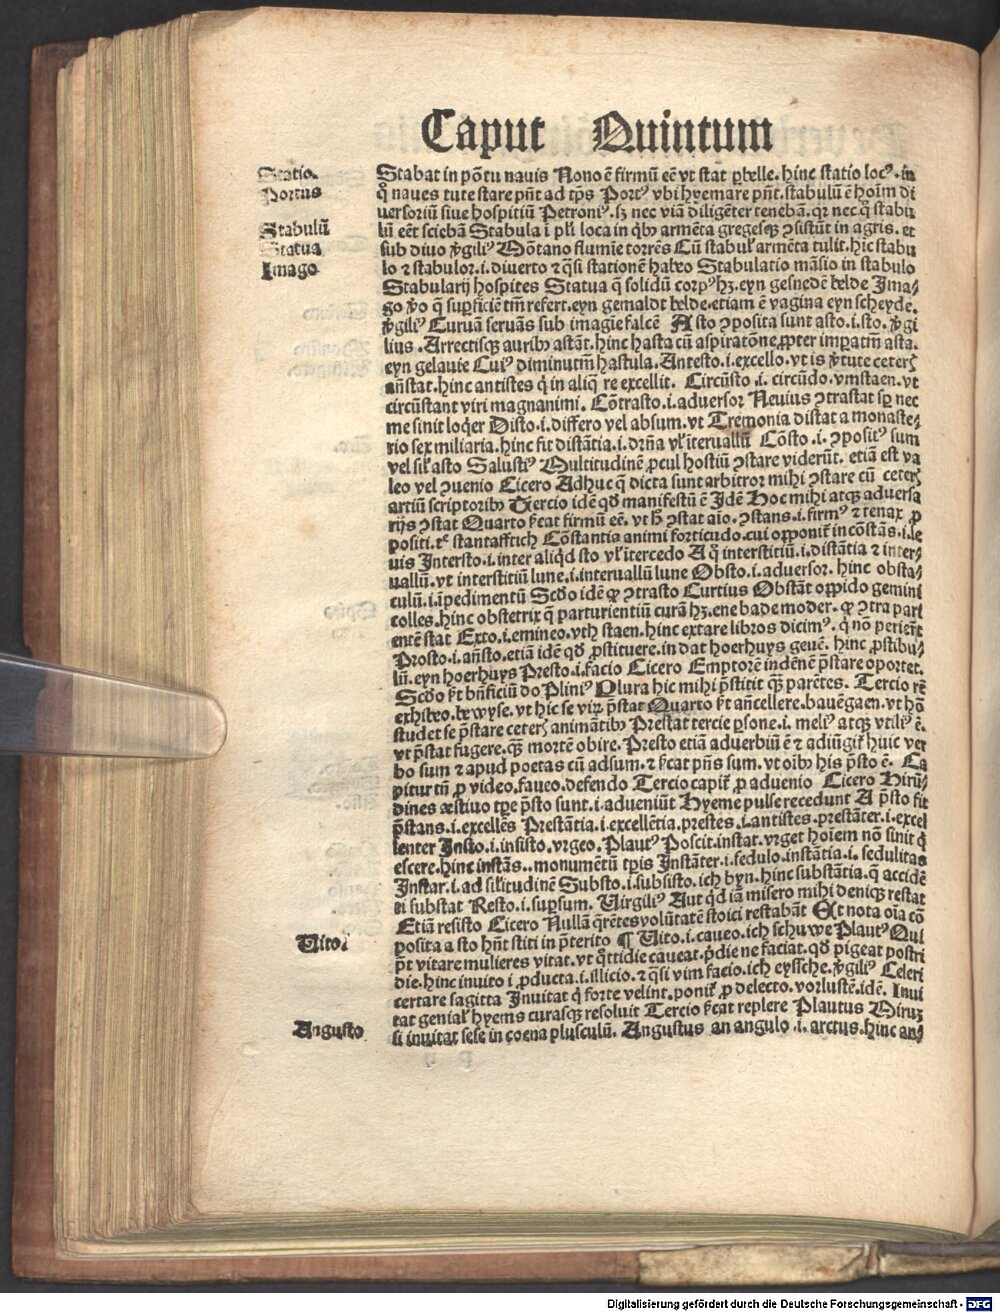 Caput Quintum
Statio.
Portus
Stabulū
Statua
Imago
Stabat in põtu nauis Nono ē firmū eē vt stat p̱belle. hinc statio locꝰ. in
q̊ naues tute stare pn̄t ad tp̄s Portꝰ vbi hyemare pn̄t. stabulū ē hoīm di
uersoriū siue hospitiū Petroniꝰ. sꝫ nec viā diligēter tenebā. qꝛ nec q̊ stabu
lū eēt sciebā Stabula ī pl̄i loca in qͥbꝰ armēta gregesqꝫ ꝯsistūt in agris. et
sub diuo v̓giliꝰ Mōtano flumīe torrēs Cū stabul̓ armēta tulit. hic stabu
lo ⁊ stabulor. i. diuerto ⁊ q̄si stationē habeo Stabulatio māsio in stabulo
Stabularij hospites Statua q̄ solidū corpꝰ hꝫ. eyn gesnedē belde Ima⸗
go v̓o q̄ sup̱ficiē tm̄ refert. eyn gemaldt belde. etiam ē vagina eyn scheyde.
v̓giliꝰ Curuā seruās sub imagīe falcē Asto ꝯposita sunt asto. i. sto. v̓gi
lius. Arrectisqꝫ auribꝰ astāt. hinc hasta cū aspiratōne. ꝓpter imp̱atm̄ asta.
eyn gelauie Cuiꝰ diminutm̄ hastula. Antesto. i. excello. vt is v̓tute ceterꝭ
an̄stat. hinc antistes qͥ in aliq̄ re excellit. Circūsto. i. circūdo. vmstaen. vt
circūstant viri magnanimi. Cōtrasto. i. aduersor Neuius ꝯtrastat sp̱ nec
me sinit loqͥer Disto. i. differo vel absum. vt Tremonia distat a monaste⸗
rio sex miliaria. hinc fit distātia. i. dr̄na vl̓ iteruallū Cōsto. i. ꝯpositꝰ sum
vel sil̓ asto Salustiꝰ Multitudinē ꝓcul hostiū ꝯstare viderūt. etiā est va
leo vel ꝯuenio Cicero Adhuc q̄ dicta sunt arbitror mihi ꝯstare cū ceterꝭ
artiū scriptoribꝰ Tercio idē qd̓ manifestū ē Idē Hoc mihi atqꝫ aduersa
rijs ꝯstat Quarto sͥcat firmū eē. vt hͦ ꝯstat aīo. ꝯstans. i. firmꝰ ⁊ tenax ꝓ
positi. tͨ stantafftich Cōstantia animi fortitudo. cui opponit̓ incōstās. i. le
uis Intersto. i. inter aliqͥd sto vl̓ itercedo A q̊ interstitiū. i. distātia ⁊ inter⸗
uallū. vt interstitiū lune. i. interuallū lune Obsto. i. aduersor. hinc obsta⸗
culū. i. īpedimentū Scd̓o idē qd̓ ꝯtrasto Curtius Obstāt oppido gemini
colles. hinc obstetrix q̄ parturientiū curā hꝫ. ene bademoder. qd̓ ꝯtra pari
entē stat Exto. i. emineo. vth staen. hinc extare libros dicimꝰ. q̄ nō perierūt
Prosto. i. an̄sto. etiā idē qd̓ ꝓstituere. in dat hoerhuys geuē. hinc ꝓstibu⸗
lū. eyn hoerhuys Presto. i. facio Cicero Emptorē indēnē p̄stare oportet.
Scd̓o sͥt bn̄ficiū do Pliniꝰ Plura hic mihi p̄stitit qꝫ parētes. Tercio rē
exhibeo. bewyse. vt hic se virꝫ p̄stat Quarto sͥt an̄cellere. bauēgaen. vt hō
studet se p̄stare ceterꝭ animātibꝰ Prestat tercie ꝑsone. i. meliꝰ atqꝫ vtiliꝰ ē.
vt p̄stat fugere. qꝫ mortē obire. Presto etiā aduerbiū ē ⁊ adiūgit̓ huic ver
bo sum ⁊ apud poetas cū adsum. ⁊ sͥcat pn̄s sum. vt oībꝰ his p̄sto ē. Ca
pitur tn̄ ꝓ video. faueo. defendo Tercio capit̓ ꝓ aduenio Cicero Hirū⸗
dines æstiuo tp̱e p̄sto sunt. i. adueniūt Hyeme pulse recedunt A p̄sto fit
p̄stans. i. excellēs Prestātia. i. excellētia. prestes. i. antistes. prestāter. i. excel
lenter Insto. i. insisto. vrgeo. Plautꝰ Poscit. instat. vrget hoīem nō sinit qͥ
escere. hinc instās.. monumētū tp̱is Instāter. i. sedulo. instātia. i. sedulitas
Instar. i. ad sil̓itudinē Substo. i. subsisto. ich byn. hinc substātia. q̄ accidē
ti substat Resto. i. sup̱sum. Virgiliꝰ Aut qͥd iā misero mihi deniqꝫ restat
Etiā resisto Cicero Nullā q̄rētes volūtatē stoici restabāt Et nota oīa cō
Vito.
posita a sto hn̄t stiti in p̄terito ¶ Vito. i. caueo. ich schuwe Plautꝰ Qui
pōt vitare mulieres vitat. vt q̊ttidie caueat. p̓die ne faciat. qd̓ pigeat postri
die. hinc inuito i ꝓducta. i. illicio. ⁊ q̄si vim facio. ich eyssche. v̓giliꝰ Celeri
certare sagitta Inuitat qͥ forte velint. ponit̓ ꝓ delecto. vorlustē. idē. Inui
tat genial̓ hyems curasqꝫ resoluit Tercio sͥcat replere Plautus Miruꝫ
Angusto
si inuitat sese in coena plusculū. Angustus an angulo. i. arctus. hinc an⸗
Digitalisierung gefördert durch die Deutsche Forschungsgemeinschaft - DFG